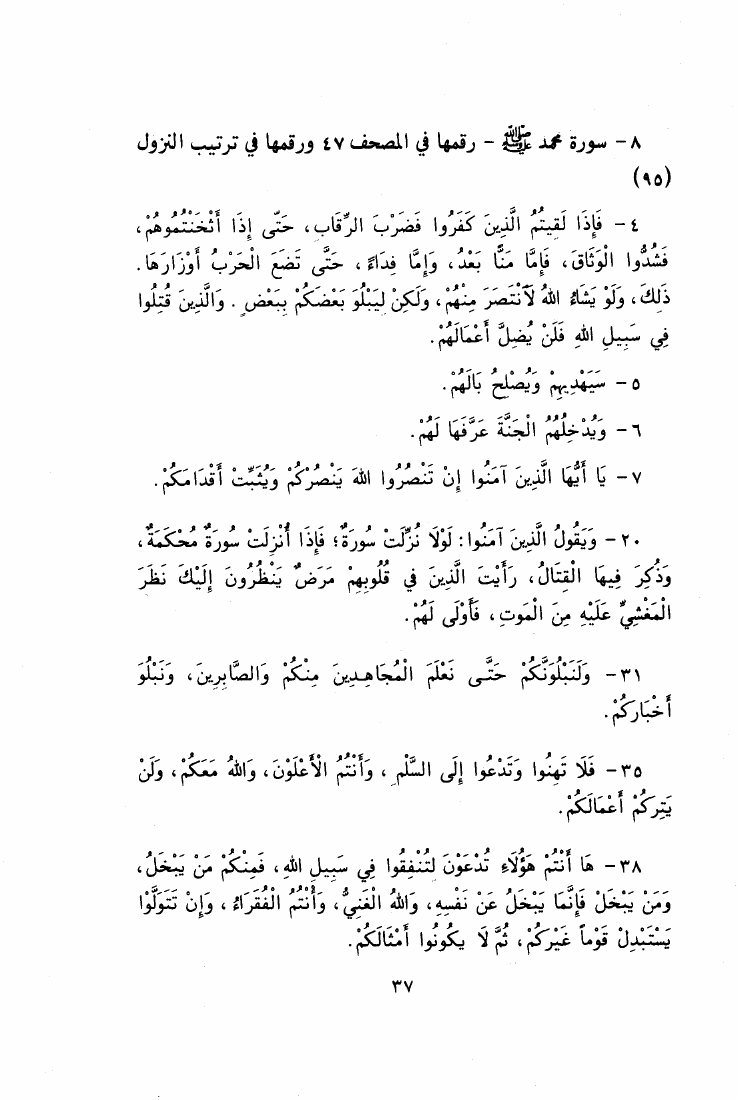 ٨ - سورة محمد ﷺ - رقمها في المصحف ٤٧ ورقمها في ترتيب النزول
(٩٥)
٤ - فَإِذَا لَقِيتُمُ الَّذِينَ كَفَرُوا فَضَرْبَ الرِّقَابِ، حَتَّى إِذَا أَثْخَنْتُمُوهُمْ،
فَشُدُّوا الْوَثَاقَ، فَإِمَّا مَنًّا بَعْدُ، وَإِمَّا فِدَاءً، حَتَّى تَضَعَ الْحَرْبُ أَوْزَارَهَا.
ذَلِكَ، وَلَوْ يَشَاءُ اللهُ لَآنْتَصَرَ مِنْهُمْ، وَلَكِنْ لِيَبْلُوَ بَعْضَكُمْ بِبَعْضٍ. وَالَّذِينَ قُتِلُوا
فِي سَبِيلِ اللهِ فَلَنْ يُضِلَّ أَعْمَالَهُمْ.
٥ - سَيَهْدِيهِمْ وَيُصْلِحُ بَالَهُمْ.
٦ - وَيُدْخِلُهُمُ الْجَنَّةَ عَرَّفَهَا لَهُمْ.
٧ - يَا أَيُّهَا الَّذِينَ آمَنُوا إِنْ تَنْصُرُوا اللهَ يَنْصُرْكُمْ وَيُثَبِّتْ أَقْدَامَكُمْ.
٢٠ - وَيَقُولُ الَّذِينَ آمَنُوا: لَوْلَا نُزِّلَتْ سُورَةٌ؛ فَإِذَا أُنْزِلَتْ سُورَةٌ مُحْكَمَةٌ،
وَذُكِرَ فِيهَا الْقِتَالُ، رَأَيْتَ الَّذِينَ في قُلُوبِهِمْ مَرَضٌ يَنْظُرُونَ إِلَيْكَ نَظَرَ
الْمَغْشِيِّ عَلَيْهِ مِنَ الْمَوتِ، فَأَوْلَى لَهُمْ.
٣١ - وَلَنَبْلُوَنَّكُمْ حَتَّى نَعْلَمَ الْمُجَاهِدِينَ مِنْكُمْ وَالصَّابِرِينَ، وَنَبْلُوَ
أَخْبَارَكُمْ.
٣٥ - فَلَا تَهِنُوا وَتَدْعُوا إِلَى السَّلْمِ، وَأَنْتُمُ الْأَعْلَوْنَ، وَاللهُ مَعَكُمْ، وَلَنْ
يَتِرَكُمْ أَعْمَالَكُمْ.
٣٨ - هَا أَنْتُمْ هَؤُلَاءِ تُدْعَوْنَ لِتُنْفِقُوا فِي سَبِيلِ اللهِ، فَمِنْكُمْ مَنْ يَبْخَلُ،
وَمَنْ يَبْخَلْ فَإِنَّمَا يَبْخَلُ عَنْ نَفْسِهِ، وَاللهُ الْغَنِيُّ، وَأَنْتُمُ الْفُقَرَاءُ، وَإِنْ تَتَوَلَّوْا
يَسْتَبْدِلْ قَوْماً غَيْرَكُمْ، ثُمَّ لَا يَكُونُوا أَمْثَالَكُمْ.
٣٧